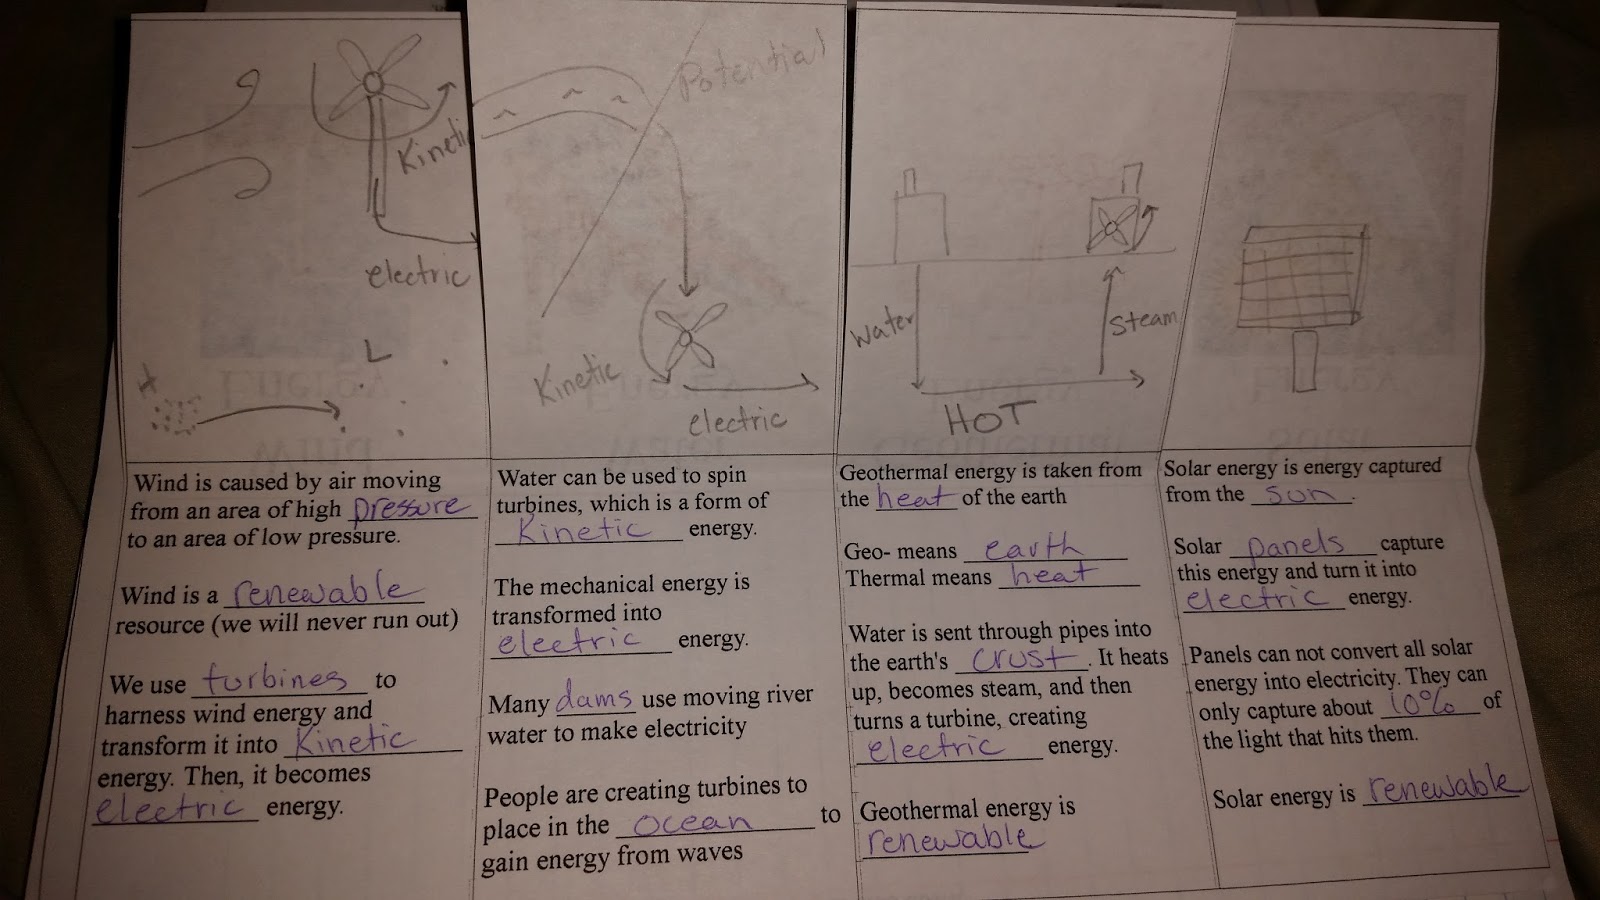 Kinetic
electric
H
L
Wind is caused by air moving
from an area of high pressure
to an area of low pressure.
Wind is a renewable
resource (we will never run out)
We use turbines to
harness wind energy and
transform it into Kinetic
energy. Then, it becomes
electric energy.
Potential
Kinetic
electric
Water can be used to spin
turbines, which is a form of
Kinetic energy.
The mechanical energy is
transformed into
electric energy.
Many dams use moving river
water to make electricity
People are creating turbines to
place in the ocean to
gain energy from waves
Water
Steam
HOT
Geothermal energy is taken from
the heat of the earth
Geo- means earth
Thermal means heat
Water is sent through pipes into
the earth's crust. It heats
up, becomes steam, and then
turns a turbine, creating
electric energy.
Geothermal energy is
renewable
Solar energy is energy captured
from the sun.
Solar panels capture
this energy and turn it into
electric energy.
Panels can not convert all solar
energy into electricity. They can
only capture about 10% of
the light that hits them.
Solar energy is renewable